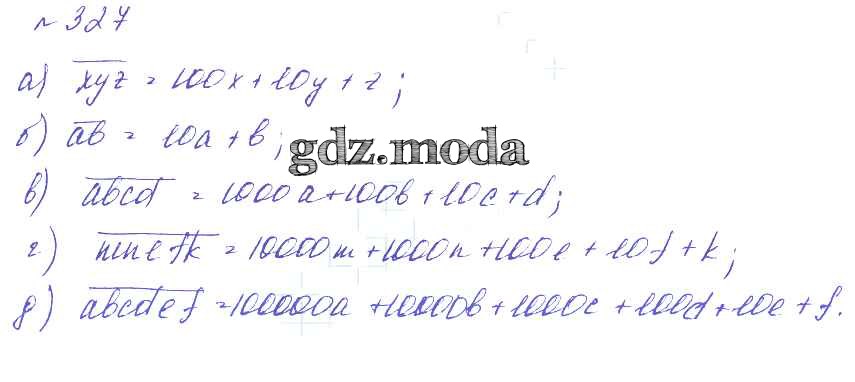 № 327
а) xyz = 100x + 10y + z;
б) ab = 10a + b;
gdz.moda
в) abcd = 1000a + 100b + 10c + d;
г) mnefk = 10000m + 1000n + 100e + 10f + k;
д) abcdef = 100000a + 10000b + 1000c + 100d + 10e + f.